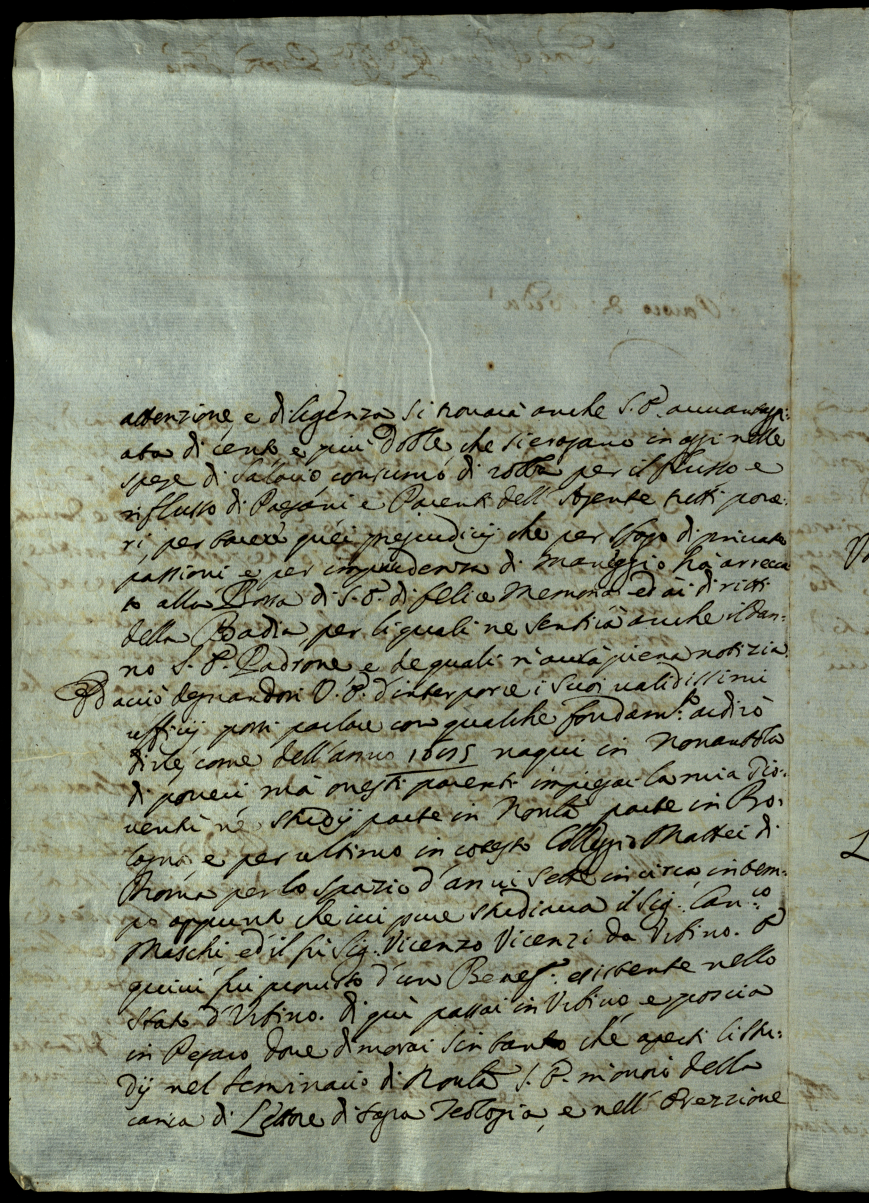 attenzione, e diligenza si trovarà anche S. P. avvantaggi-
ata di cento e più doble, che si erogano in oggi nelle
spese di salario, consumo di robba per il flusso e
riflusso di Paesani e Parenti dell' Agente tutti pove-
ri, per tacere quei prejudicij che per sfogo di private
passioni e per imprudenza di maneggio hà arreca
to alla Borsa di S. P. di felice Memoria ed ai diritti
della Badia per li quali ne sentirà anche il dan-
no S. P. Padrone e de quali n'avrà piena notizia.
Ed acciò degnandosi V. P. d'interporre i suoi validissimi
ufficij possi parlare con qualche fondam.to ardirò
dirle, come dell' anno 1695 naqui in Nonantola
di poveri mà onesti parenti impiegai la mia gio-
ventù ne studij parte in Nontla parte in Bo-
logna e per ultimo in cotesto Collegio Mattei di
Roma per lo spazio d'anni sette in circa, in tem-
po appunto che ivi pure studiava il Sig. Can.co
Maschi ed il fù Sig. Vicenzo Vicenzi da Urbino. E
quivi fui provisto d'un Benef. esistente nello
stato d'Urbino. di qui passai in Urbino, e poscia
in Pesaro dove dimorai sin tanto che aperti li stu-
dij nel seminario di Nontla S. P. m'onorò della
carica di Lettore di sagra Teologia, e nell' Erezzione